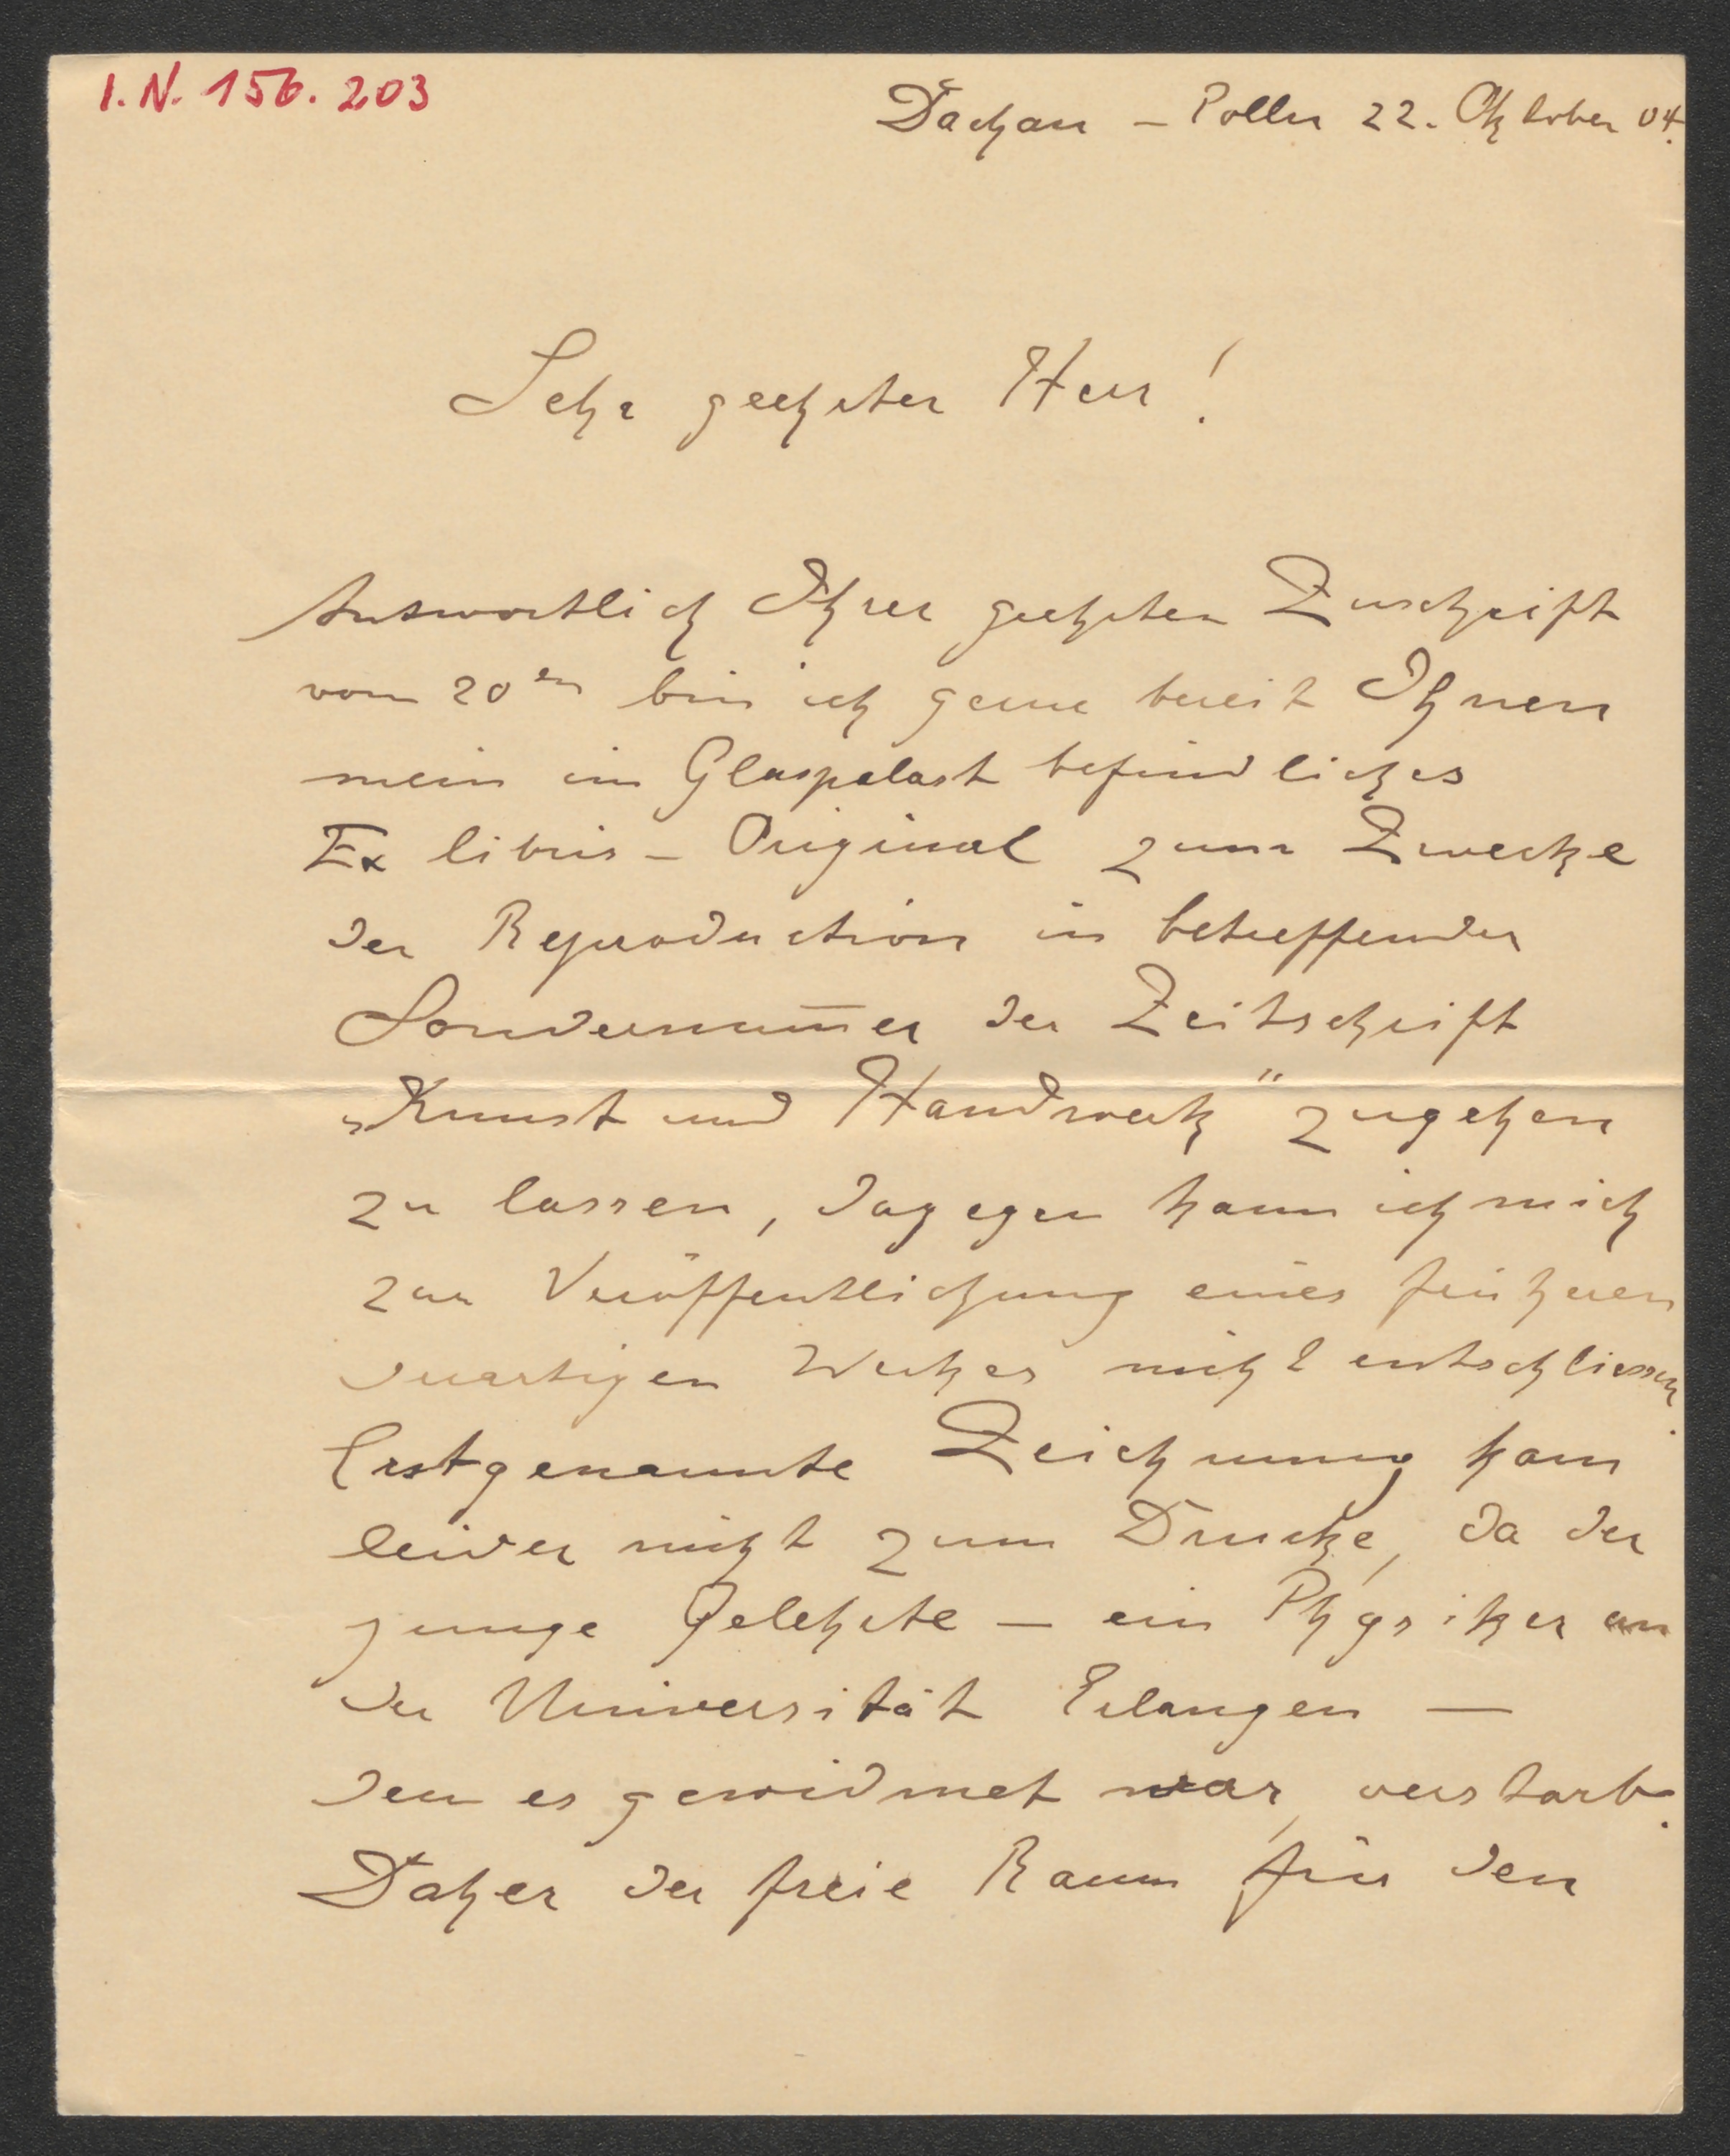 I.N. 156.203
Dachau – Polln 22. Oktober 04.
Sehr geehrter Herr!
Antwortlich Ihrer geehrten Zuschrift
vom 20en bin ich gerne bereit Ihnen
mein im Glaspalast befindliches
Ex libris – Original zum Zwecke
der Reproduction in betreffender
Sondernum̄er der Zeitschrift
„Kunst und Handwerk" zugehen
zu lassen, dagegen kann ich mich
zur Veröffentlichung eines früheren
derartigen Werkes nicht entschliessen
Erstgenannte Zeichnung kam
leider nicht zum Drucke, da der
junge Gelehrte – ein Physiker an
der Universität Erlangen –
dem es gewidmet war, verstarb.
Daher der freie Raum für den